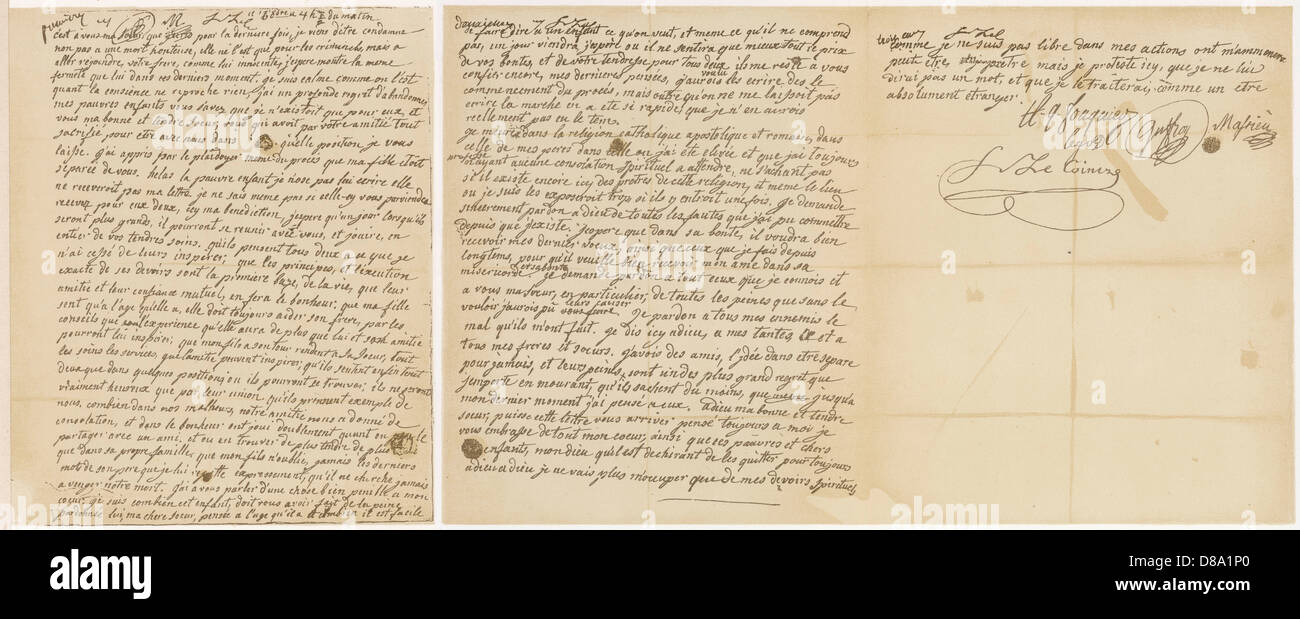 premiere M Le Cel ce 16 8bre a 4 h ½ du matin
c'est a vous ma soeur que j'ecris pour la derniere fois, je viens d'etre condamné
non pas a une mort honteuse, elle ne l'est que pour les criminels, mais a
aller rejoindre, votre frere, comme lui innocente, j'espere montré la meme
fermeté que lui dans ces derniers moment. je suis calme comme on l'est
quant la conscience ne reproche rien, j'ai un profonde regret d'abandonner
mes pauvres enfants vous savez que je n'existoit que pour eux, et
vous ma bonne et tendre soeur, vous qui avoit par votre amitie tout
sacrifié pour etre avec nous dans quelle position je vous
laisse. j'ai appris par le plaidoyer meme du proces que ma fille etoit
separée de vous. helas la pauvre enfant je n'ose pas lui ecrire elle
ne receveroit pas ma lettre. je ne sais meme pas si celle-cy vous parviendera
recevez pour eux deux, icy ma benediction, j'espere qu'un jour lorsqu'ils
seront plus grands, il pourront se reunir avec vous, et jouire, en
entier de vos tendres soins. qu'ils pensent tous deux a ce que je
n'ai cessé de leurs inspirer; que les principes, et l'execution
exacte de ses devoirs sont la premiere baze, de la vie, que leur
amitie et leur confiance mutuel, en fera le bonheur; que ma fille
sent qu'a l'age qu'elle a, elle doit toujours aider son frere, par les
conseils que l'experience qu'elle aura de plus que lui et son amitie
pourront lui inspirer; que mon fils a son tour rendent a sa soeur, tout
les soins les services, que l'amitie peuvent inspirer; qu'ils sentent enfin tout
deux que dans quelques positions ou ils pourront se trouver, ils ne seront
vraiment heureux que par leur union. qu'ils prennent exemple de
nous, combien dans nos malheurs, notre amitie nous a donné de
consolation, et dans le bonheur ont joui doublement quant on peut le
partager avec un ami, et ou en trouver de plus tendre de plus
que dans sa propre famille, que mon fils n'oublie jamais les derniers
mots de son pere que je lui repette expressement, qu'il ne cherche jamais
a venger notre mort. j'ai a vous parler d'une chose bien penille a mon
coeur, je sais combien cet enfant, doit vous avoir fait de la peine
pardonné lui, ma chere soeur, pensée a l'age qu'il a et combien il est facile
deuxieme
de faire dire a un enfant ce qu'on veut, et meme ce qu'il ne comprend
pas, un jour viendra, j'espere ou il ne sentira que mieux tout le prix
de vos bontés, et de votre tendresse pour tous deux il me reste a vous
confier encore, mes dernieres pensées, j'aurois voulu les ecrire dès le
commencement du procès, mais outre qu'on ne me laissoit pas
ecrire la marche en a ete si rapide, que je n'en aurois
reellement pas eu le tems.
je meurs dans la religion catholique apostolique et romaine, dans
celle de mes peres dans celle ou j'ai été elevée et que j'ai toujours
professé n'ayant aucune consolation spirituel a attendre, ne sachant pas
s'il existe encore icy, des pretres de cette religion, et meme le lieu
ou je suis les exposeroit trop si ils y entroit une fois, je demande
sincerement pardon a dieu de toutes les fautes que j'ai pu commettre
depuis que j'existe. j'espere que dans sa bonté, il voudra bien
recevoir mes dernier voeux, ainsi que ceux que je fais depuis
longtems, pour qu'il veuille bien recevoir mon ame dans sa
misericorde et sa bonté. je demande pardon a tout ceux que je connois et
a vous ma soeur, en particulier, de toutes les peines que sans le
vouloir j'aurois pu leurs causer. Je pardon a tous mes ennemis le
mal qu'ils m'ont fait. je dis icy adieu, a mes tantes, et a
tous mes freres et soeurs. j'avois des amis, l'idée d'en etre separe
pour jamais, et leurs peines, sont un des plus grand regret que
j'emporte en mourant, qu'ils sachent du moins, que jusqu'a
mon dernier moment j'ai pensé a eux. adieu ma bonne et tendre
soeur, puisse cette lettre vous arriver. pensé toujours a moi je
vous embrasse de tout mon coeur, ainsi que ces pauvres et chers
enfants, mon dieu qu'il est dechirant de les quitter pour toujours
adieu adieu je ne vais plus m'occuper que de mes devoirs spirituels
comme je ne suis pas libre dans mes actions ont m'ammenera
peut etre pretre mais je proteste icy, que je ne lui
dirai pas un mot, et que je le traiterai, comme un etre
absolument etranger.
A Q Fouquier
Legot
Guffroy
Massieu
L Le Cointre
alamy
a
a
alamy
D8A1P0
www.alamy.com